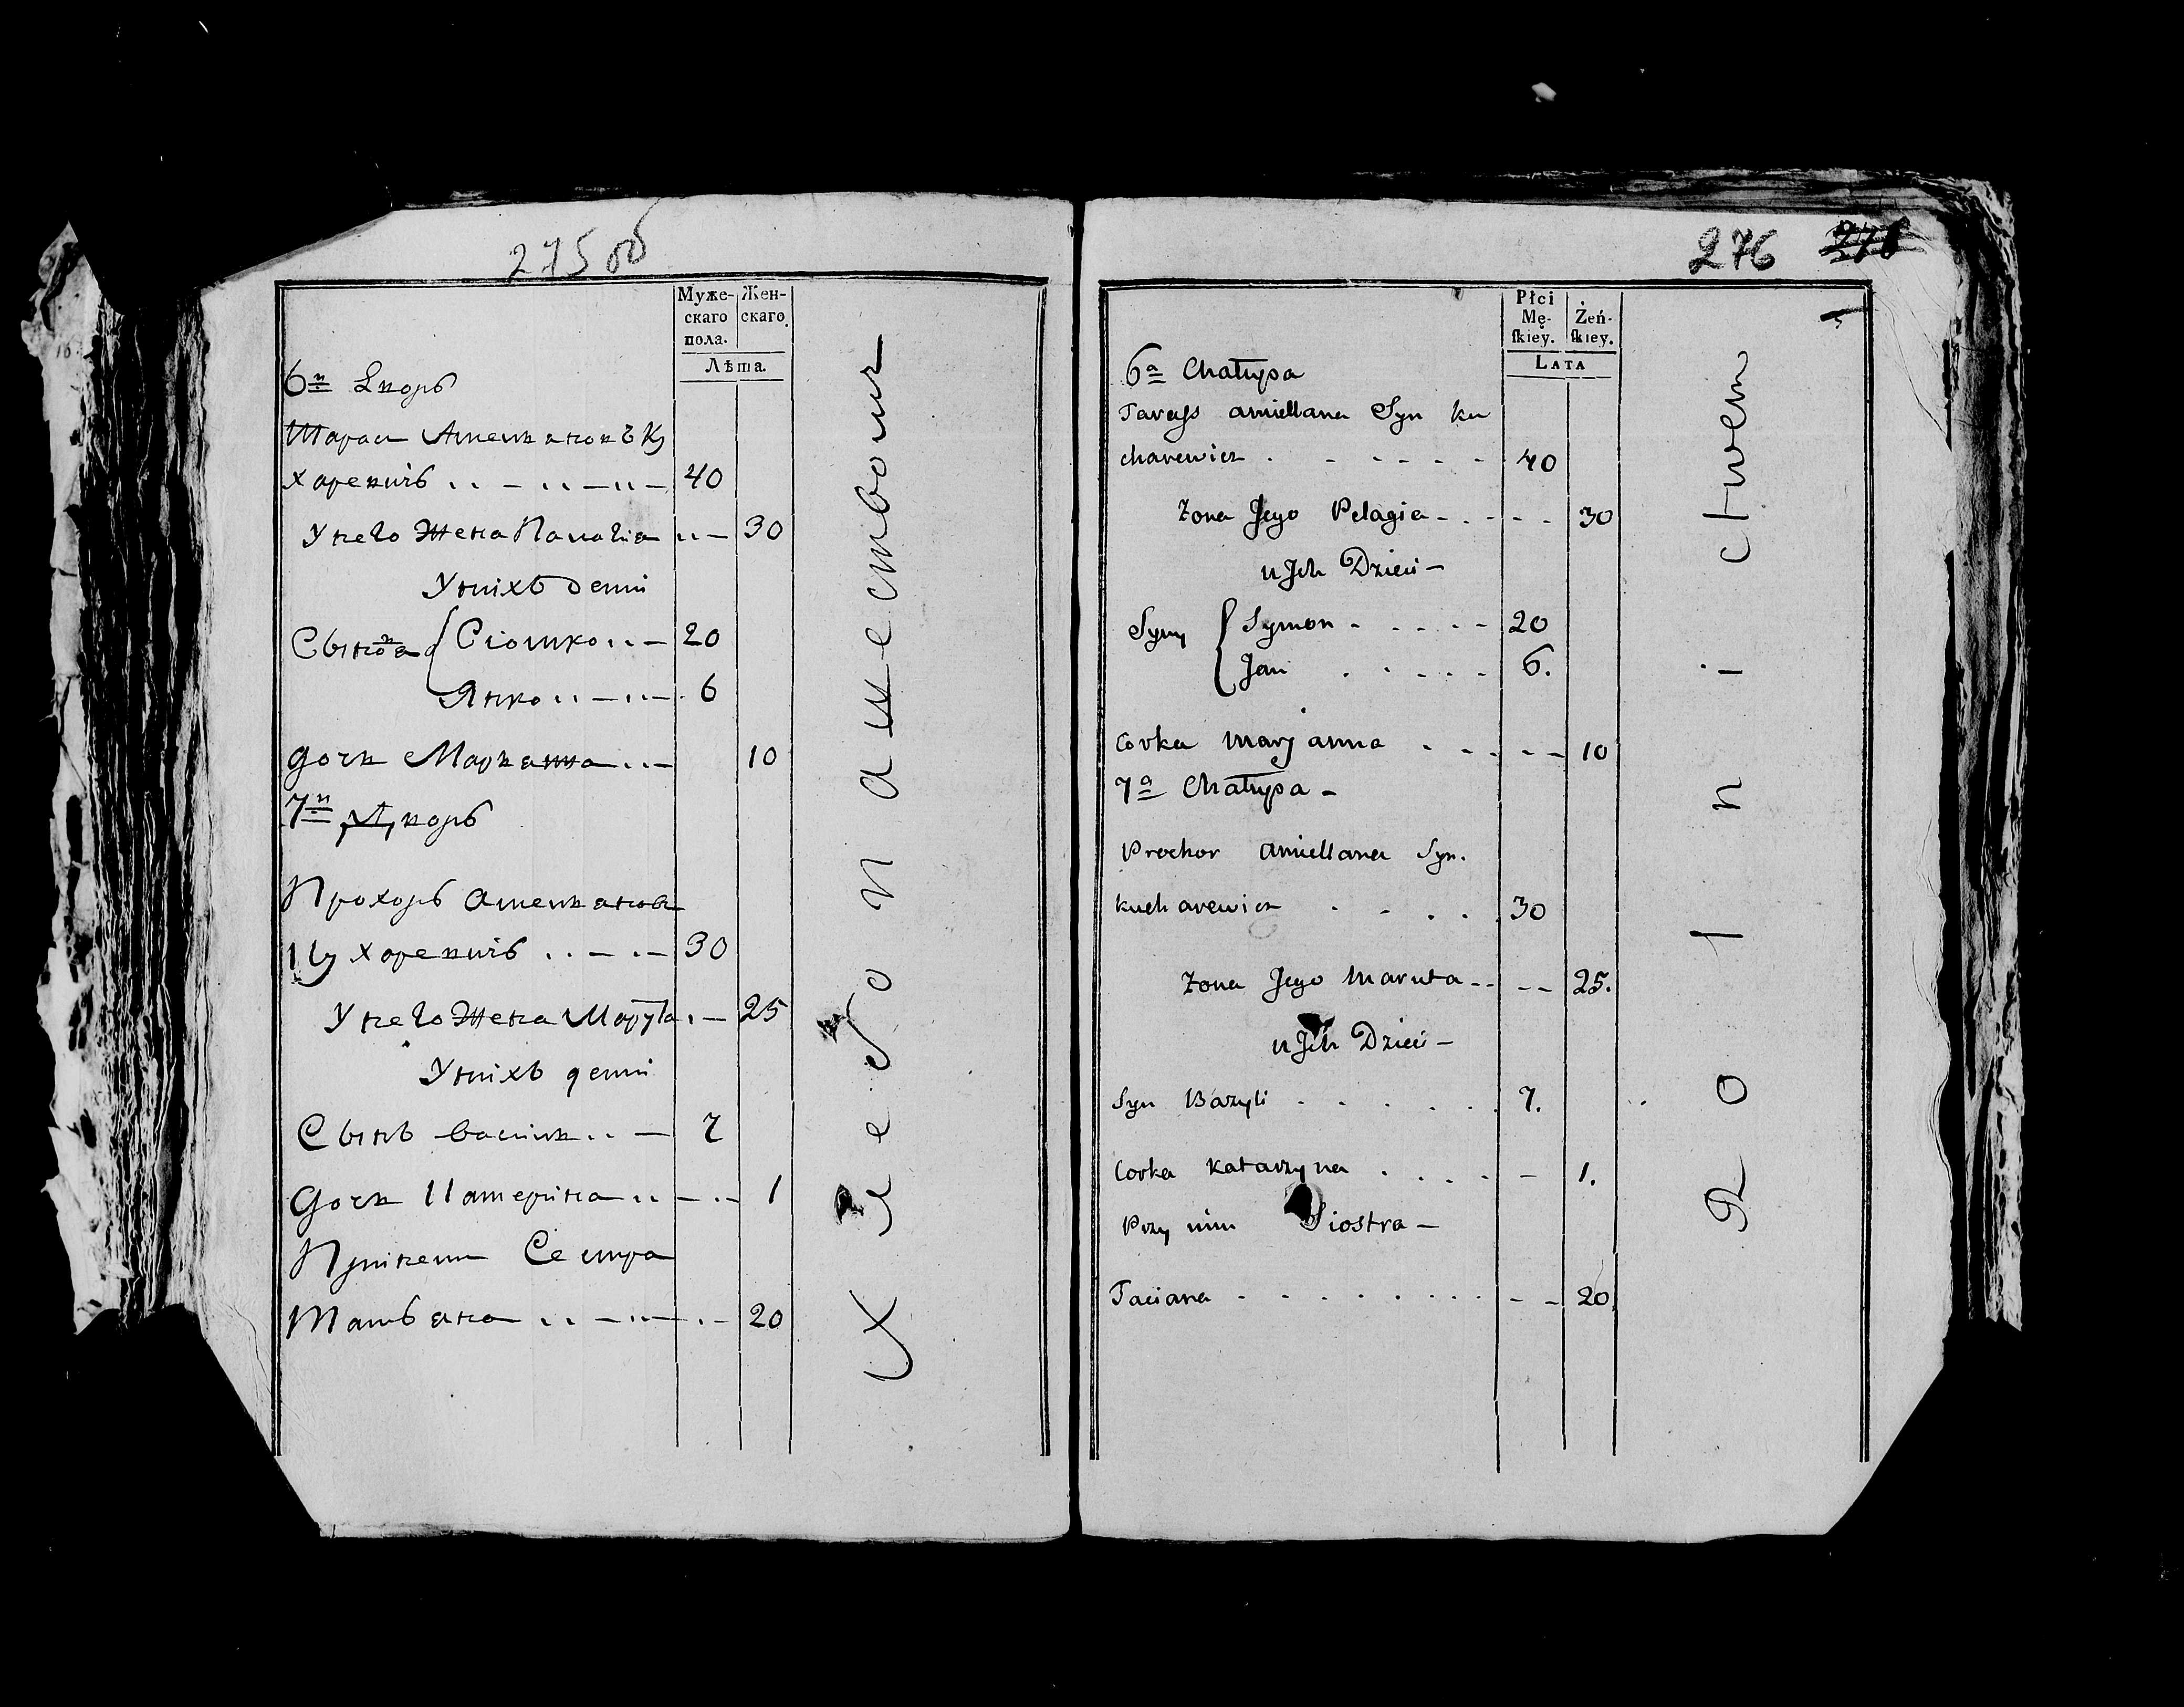 275 об
Муже-
скаго
пола.
Жен-
скаго.
Лѣта.
6й Дворъ
Тарас Амельяновъ Ку
харевичъ 40
У него жена Палагiа 30
У нихъ дети
Сынов'я Сiомко 20
Янко 6
Дочь Марьяна 10
7й Дворъ
Прохоръ Амельянов
Кухаревичъ 30
У него жена Марута 25
У нихъ дети
Сынъ Василь 7
Дочь Катерiна 1
Прiнем Сестра
Татьяна 20
Хлебопашеством
276
Płci
Mę-
ſkiey.
Żeń-
ſkiey.
LATA
6a Chałupa
Tarass amiellana Syn ku
charewicz 40
Zona Jego Pelagia 30
u Jch Dzieci
Syny Symon 20
Jan 6.
Corka Maryanna 10
7a Chałupa
Prochor amiellana Syn.
kucharewicz 30
Zona Jego Maruta 25.
u Jch Dzieci
Syn Bazyli 7.
Corka Katarzyna 1.
Przy nim Siostra
Taciana 20
Rolnictwem